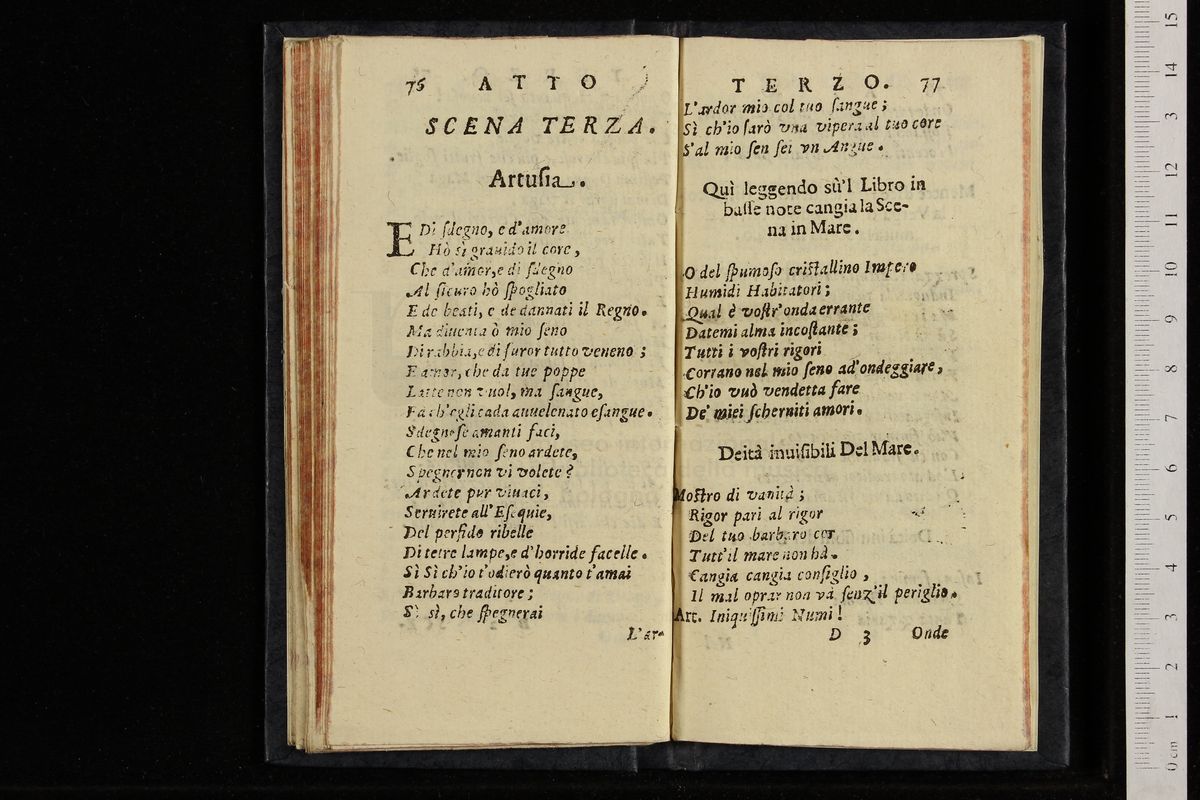 76 ATTO
SCENA TERZA.
Artusia.
E Di ſdegno, e d'amore
Hò sì grauido il core,
Che d'amor, e di ſdegno
Al ſicuro hò ſpogliato
E de beati, e de dannati il Regno.
Ma diuenta ò mio ſeno
Di rabbia, e di furor tutto veneno;
E amor, che da tue poppe
Latte non vuol, ma ſangue,
Fà ch'egli cada auuelenato eſangue.
Sdegnoſe amanti faci,
Che nel mio ſeno ardete,
Spegner non vi volete?
Ardete pur viuaci,
Seruirete all'Eſequie,
Del perfido ribelle
Di tetre lampe, e d'horride facelle.
Sì Sì ch'io t'odierò quanto t'amai
Barbaro traditore;
Sì sì, che ſpegnerai
L'ar-
TERZO. 77
L'ardor mio col tuo ſangue;
Sì ch'io ſarò vna vipera al tuo core
S'al mio ſen ſei vn Angue.
Quì leggendo sù'l Libro in
baſſe note cangia la Sce-
na in Mare.
O del ſpumoſo criſtallino Impero
Humidi Habitatori;
Qual è voſtr'onda errante
Datemi alma incoſtante;
Tutti i voſtri rigori
Corrano nel mio ſeno ad'ondeggiare,
Ch'io vuò vendetta fare
De' miei ſcherniti amori.
Deità inuiſibili Del Mare.
Moſtro di vanità;
Rigor pari al rigor
Del tuo barbaro cor
Tutt'il mare non hà.
Cangia cangia conſiglio,
Il mal oprar non và ſenz'il periglio.
Art. Iniquiſſimi Numi!
D 3 Onde
15
14
3
12
11
10
9
8
7
6
5
4
3
2
1
0 cm